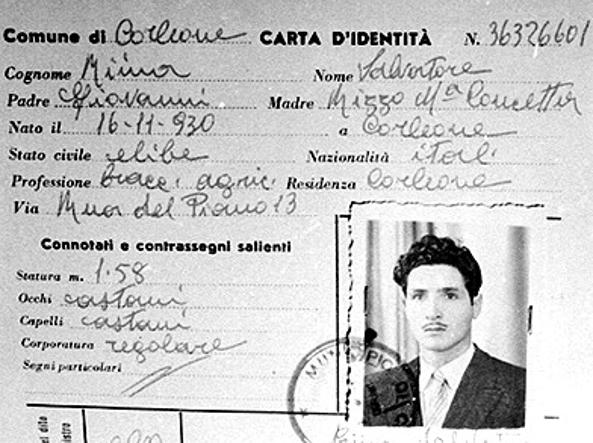 Comune di Corleone CARTA D'IDENTITÀ N. 36326601
Cognome Riina Nome Salvatore
Padre Giovanni Madre Rizzo Mª Concetta
Nato il 16-11-930 a Corleone
Stato civile celibe Nazionalità ital.
Professione bracc. agric. Residenza Corleone
Via Rua del Piano 13
Connotati e contrassegni salienti
Statura m. 1.58
Occhi castani
Capelli castani
Corporatura regolare
Segni particolari
MUNICIPIO DI C
del dito